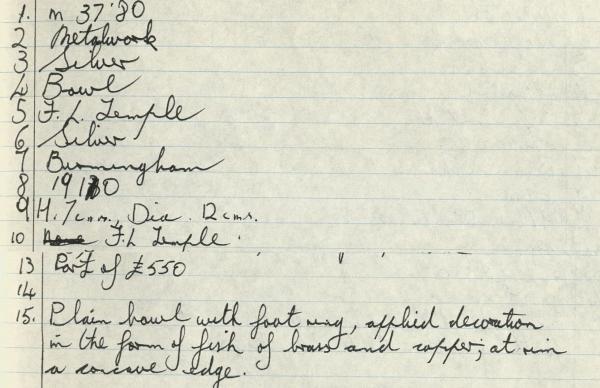 1. m 37'80
2 Metalwork
3 Silver
4 Bowl
5 F.L. Temple
6 Silver
7 Birmingham
8 1910
9 H. 7cms, Dia. 12cms.
10 F.L Temple
13 Part of £550
14
15. Plain bowl with foot ring, applied decoration
in the form of fish of brass and copper; at rim
a concave edge.